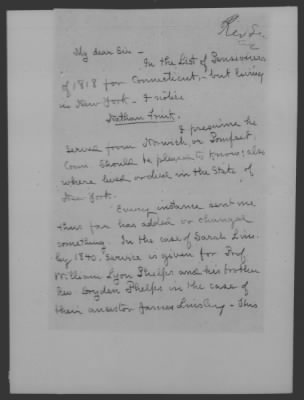 My dear Sir -
In the List of Pensioners
of 1818 for Connecticut, - but living
in New York - I notice
Nathan
I presume he
served from Norwich or Pomfret,
Conn. Should be pleased to know; also
where lived or died in the State of
New York.
Every instance sent me
thus far has added or changed
something. In the case of Sarah Lins-
ley 1840. Service is given for Prof
William Lyon Phelps and his brother
Rev Dryden Phelps in the case of
their ancestor James Linsley - This